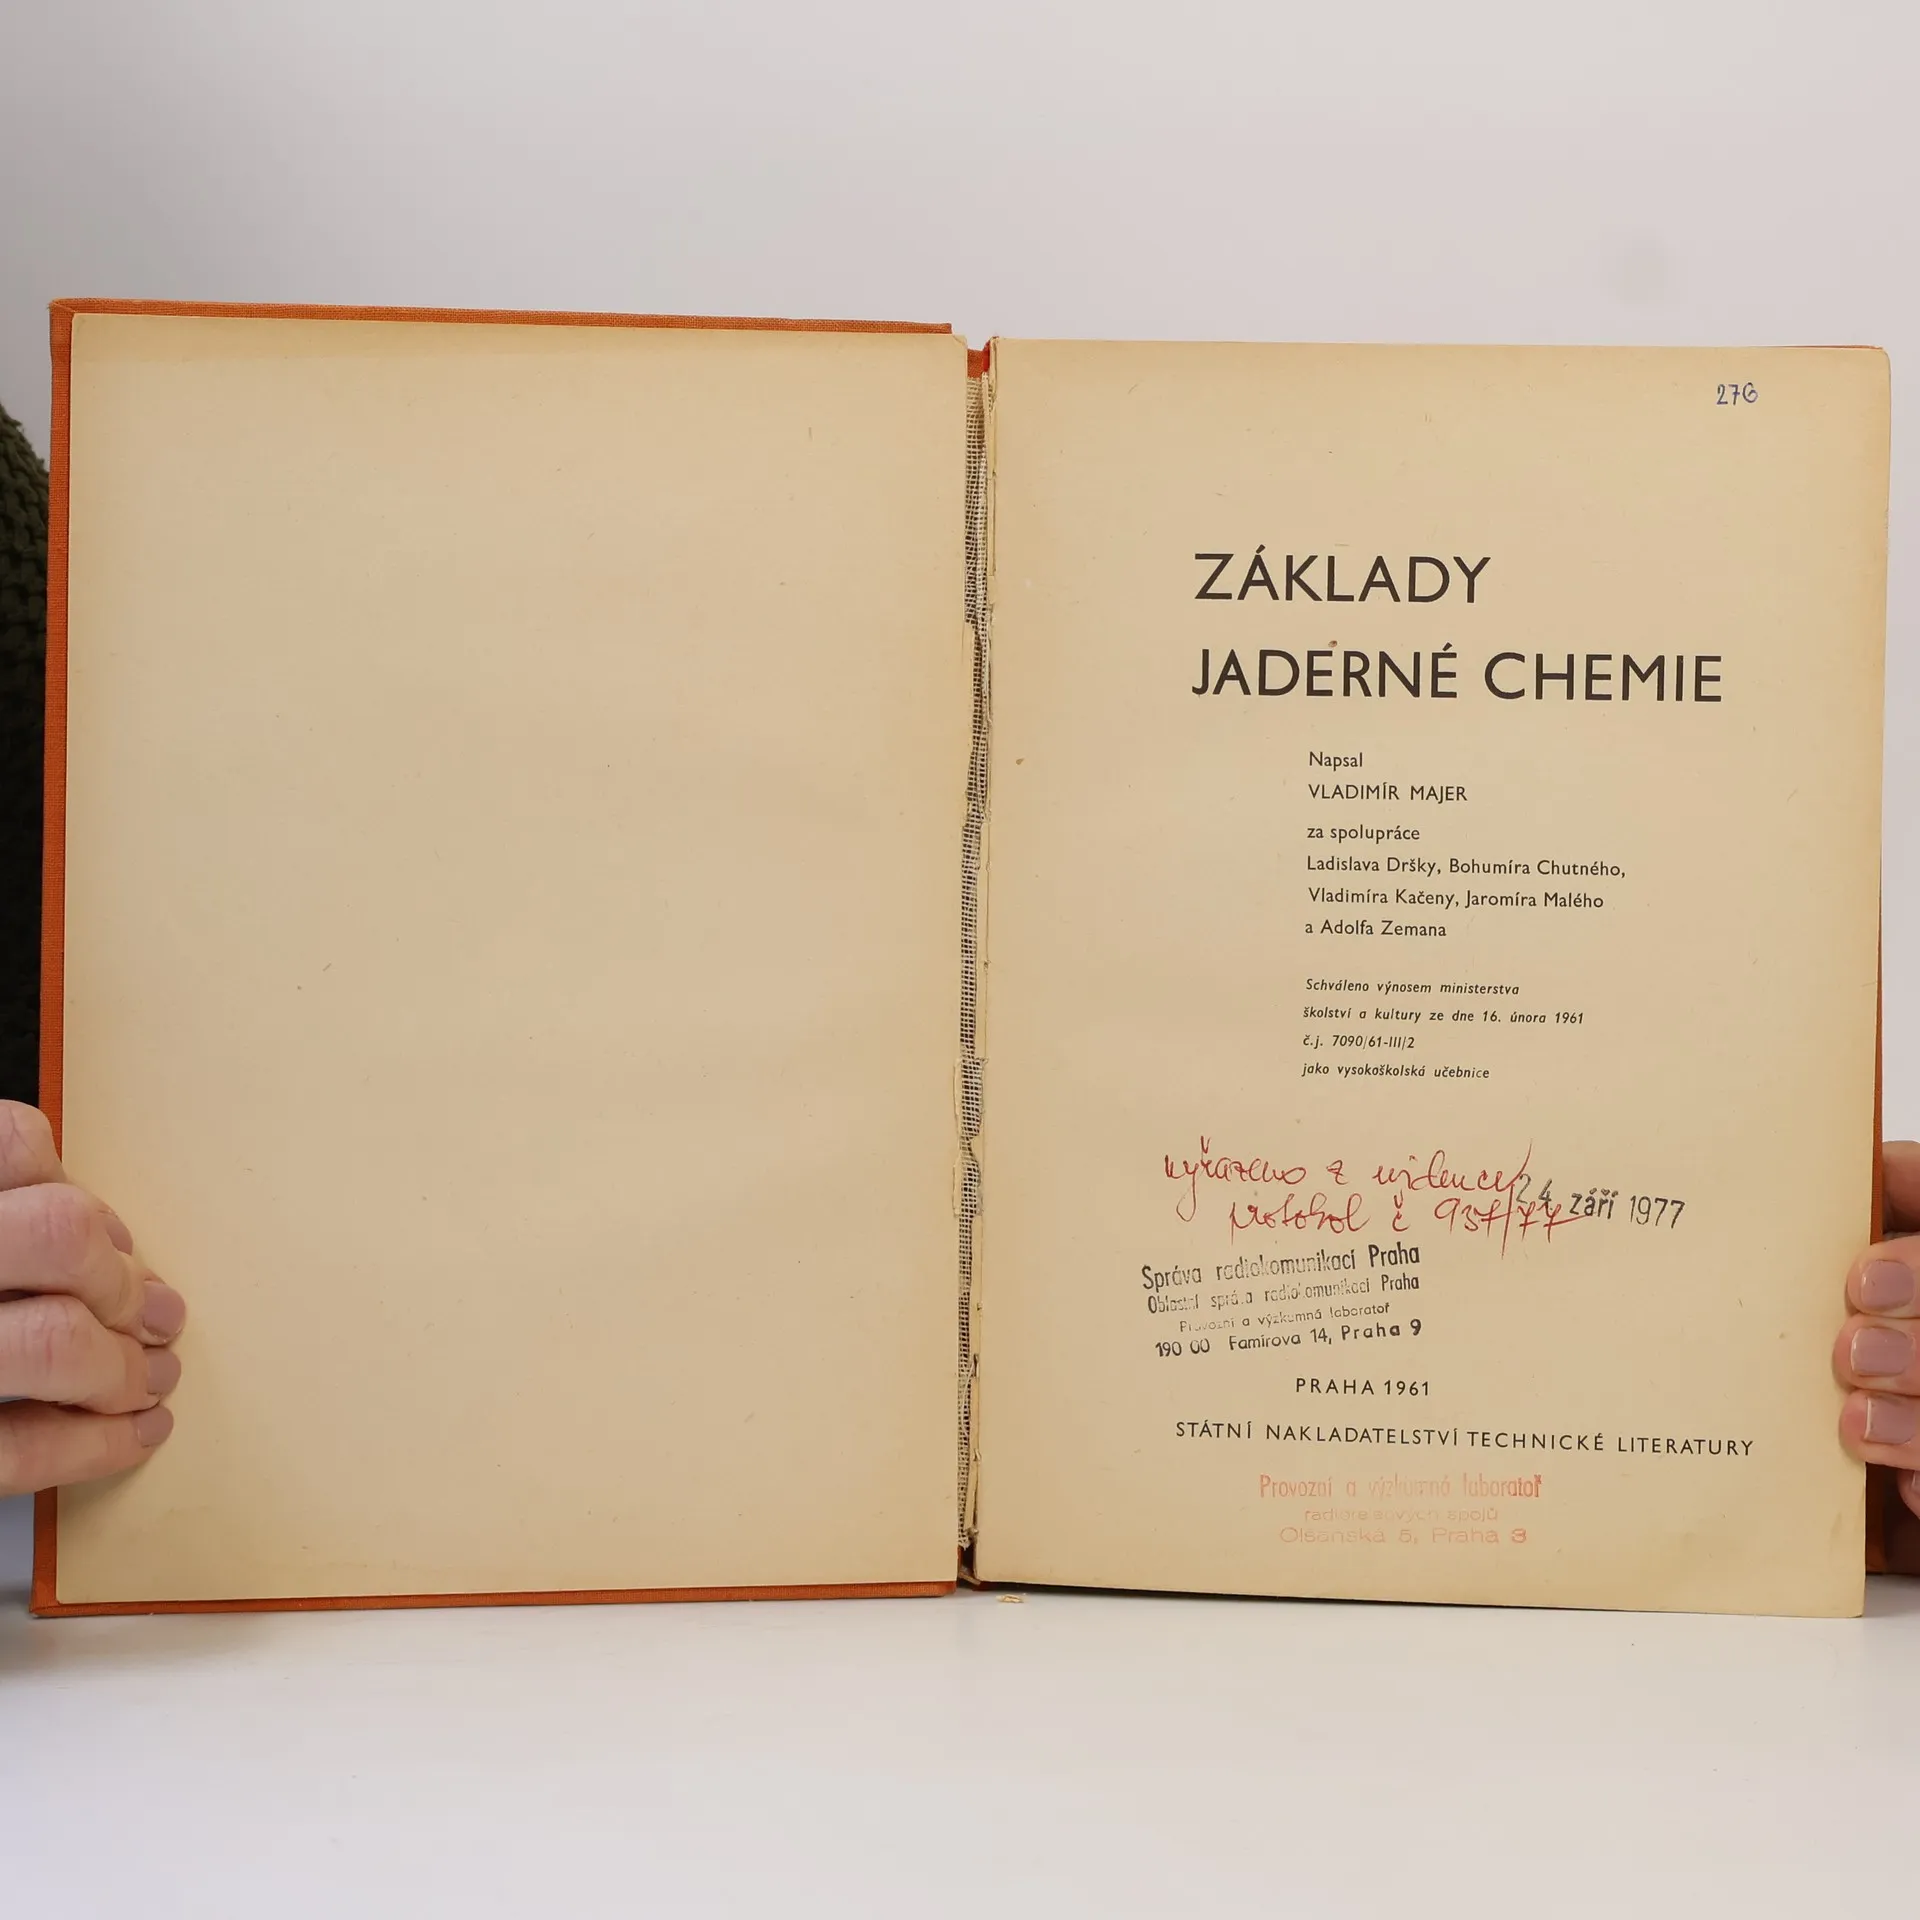 276
ZÁKLADY
JADERNÉ CHEMIE
Napsal
VLADIMÍR MAJER
za spolupráce
Ladislava Dršky, Bohumíra Chutného,
Vladimíra Kačeny, Jaromíra Malého
a Adolfa Zemana
Schváleno výnosem ministerstva
školství a kultury ze dne 16. února 1961
č.j. 7090/61-III/2
jako vysokoškolská učebnice
vyřazeno z evidence
24. září 1977
protokol č 937/77
Správa radiokomunikací Praha
Oblastní správa radiokomunikací Praha
Provozní a výzkumná laboratoř
190 00 Famírova 14, Praha 9
PRAHA 1961
STÁTNÍ NAKLADATELSTVÍ TECHNICKÉ LITERATURY
Provozní a výzkumná laboratoř
radioreleových spojů
Olšanská 5, Praha 3